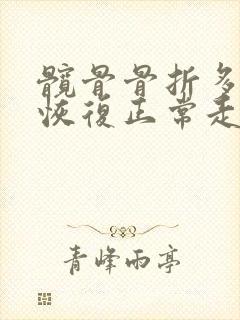 髖骨骨折多
恢復正常走
青峰雨亭